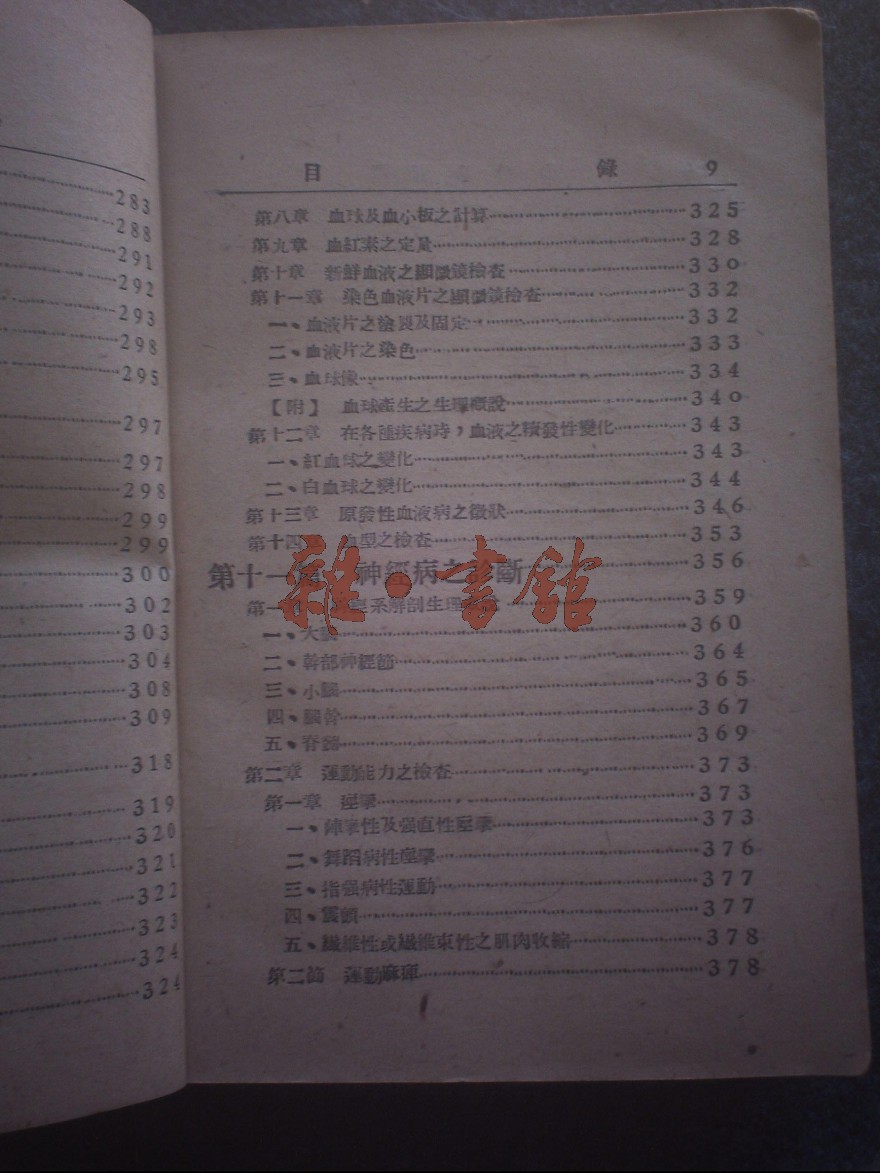 283
288
291
292
293
298
295
297
297
298
299
299
300
302
303
304
308
309
318
319
320
321
322
323
324
324
目 錄 9
第八章 血球及血小板之計算 325
第九章 血紅素之定量 328
第十章 新鮮血液之顯微鏡檢查 330
第十一章 染色血液片之顯微鏡檢查 332
一、血液片之塗製及固定 332
二、血液片之染色 333
三、血球像 334
【附】 血球產生之生理概說 340
第十二章 在各種疾病時，血液之續發性變化 343
一、紅血球之變化 343
二、白血球之變化 344
第十三章 原發性血液病之徵狀 346
第十四 血型之檢查 353
第十一 神經病之診斷 356
第一 系解剖生理 359
一、大腦 360
二、幹部神經節 364
三、小腦 365
四、腦幹 367
五、脊髓 369
第二章 運動能力之檢查 373
第一章 痙攣 373
一、陣攣性及强直性痙攣 373
二、舞蹈病性痙攣 376
三、指痙病性運動 377
四、震顫 377
五、纖維性或纖維束性之肌肉收縮 378
第二節 運動麻痺 378
雜·書館